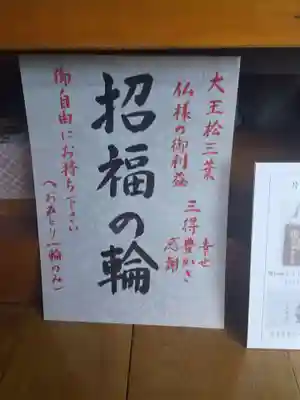 大王松三葉
仏様の御利益
三得
幸せ
豊かさ
感謝
招福の輪
御自由にお持ち下さい
へおひとり一輪のみ〉